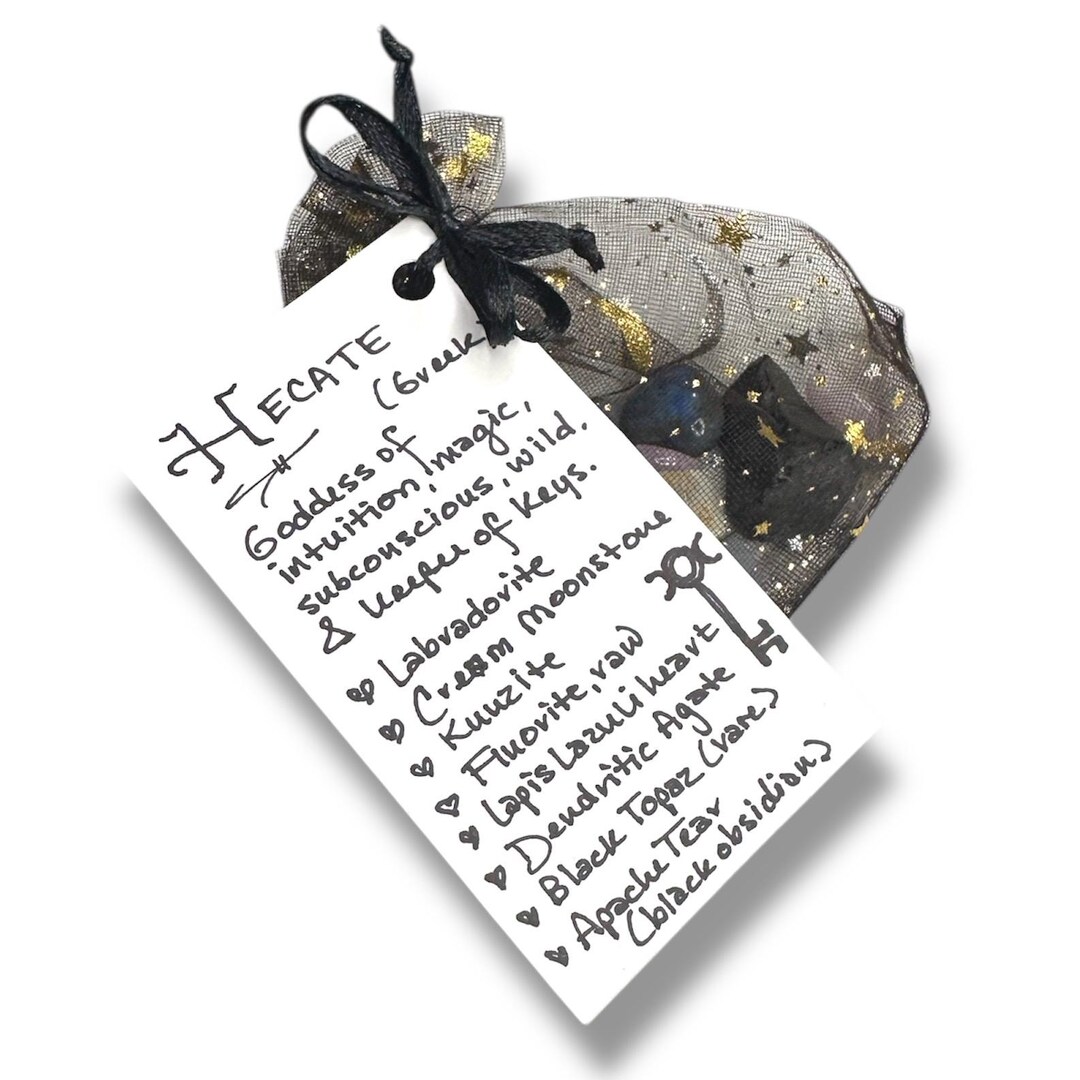 HECATE
(Greek)
Goddess of
intuition, magic,
subconscious, wild,
& keeper of keys.
Labradorite
Cream Moonstone
Kunzite
Fluorite, raw
Lapis Lazuli heart
Dendritic Agate
Black Topaz (rare)
Apache Tear
(black obsidian)